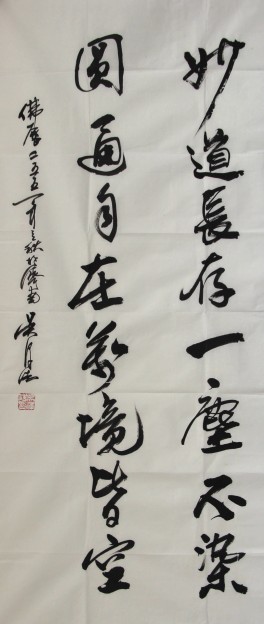 妙道長存一塵不染
圓通自在萬境皆空
佛歷二五五一年之秋於濟南
吳